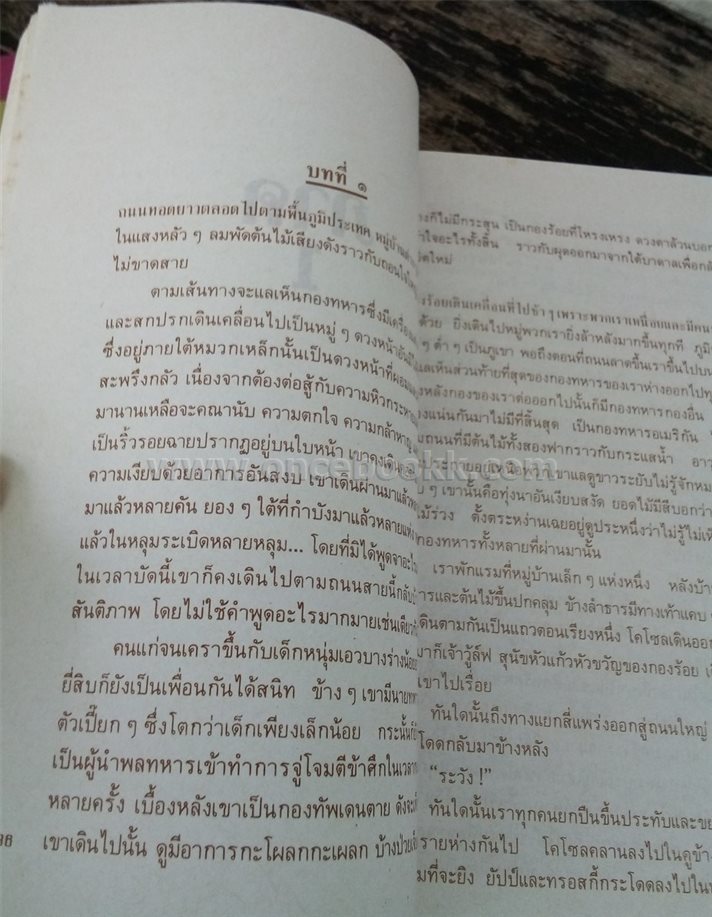 บทที่ ๑
ถนนทอดยาวตลอดไปตามพื้นภูมิประเทศ หมู่บ้าน
ในแสงหลัว ๆ ลมพัดต้นไม้เสียงดังราวกับถอนใจ
ไม่ขาดสาย
ตามเส้นทางจะแลเห็นกองทหารซึ่งมี
และสกปรกเดินเคลื่อนไปเป็นหมู่ ๆ ดวงหน้า
ซึ่งอยู่ภายใต้หมวกเหล็กนั้นเป็นดวงหน้าที่
สะพรึงกลัว เนื่องจากต้องต่อสู้กับความหิว
มานานเหลือจะคณานับ ความตกใจ ความกล้าหาญ
เป็นริ้วรอยฉายปรากฏอยู่บนใบหน้า เขาคงเดิน
ความเงียบด้วยอาการอันสงบ เขาเดินผ่านมาแล้ว
มาแล้วหลายคัน ยอง ๆ ใต้ที่กำบังมาแล้วหลายแห่ง
แล้วในหลุมระเบิดหลายหลุม... โดยที่มิได้พูดจา
ในเวลาบัดนี้เขาก็คงเดินไปตามถนนสายนี้กลับ
สันติภาพ โดยไม่ใช้คำพูดอะไรมากมายเช่นเดียว
คนแก่จนเคราขึ้นกับเด็กหนุ่มเอวบางร่างน้อย
ยี่สิบก็ยังเป็นเพื่อนกันได้สนิท ข้าง ๆ เขามีนาย
ตัวเปี๊ยก ๆ ซึ่งโตกว่าเด็กเพียงเล็กน้อย กระนั้น
เป็นผู้นำพลทหารเข้าทำการจู่โจมตีข้าศึกในเวลา
หลายครั้ง เบื้องหลังเขาเป็นกองทัพเดนตาย ดังจะ
เขาเดินไปนั้น ดูมีอาการกะโผลกกะเผลก บ้างป่วย
ก็ไม่มีกระสุน เป็นกองร้อยที่โหรงเหรง ดวงตาล้วนบอก
อะไรทั้งสิ้น ราวกับผุดออกมาจากใต้บาดาลเพื่อ
ใหม่
ร้อยเดินเคลื่อนที่ไปช้า ๆ เพราะพวกเราเหนื่อยและมีคน
ด้วย ยิ่งเดินไปหมู่พวกเรายิ่งล้าหลังมากขึ้นทุกที
ๆ ต่ำ ๆ เป็นภูเขา พอถึงตอนที่ถนนลาดขึ้นเราขึ้นไปบน
แลเห็นส่วนท้ายที่สุดของกองทหารของเราห่างออกไป
หลังกองของเราต่อออกไปนั้นก็มีกองทหารกองอื่น
แน่นกันมาไม่มีที่สิ้นสุด เป็นกองทหารอเมริกัน
ถนนที่มีต้นไม้ทั้งสองฟากราวกับกระแสน้ำ
ประกายอยู่เหนือหัวเขาแลดูขาวระยับไม่รู้จัก
ๆ เขานั้นคือทุ่งนาอันเงียบสงัด ยอดไม้มีสีบอก
ไม้ร่วง ตั้งตระหง่านเฉยอยู่ดูประหนึ่งว่าไม่รู้ไม่
กองทหารทั้งหลายที่ผ่านมานั้น
เราพักแรมที่หมู่บ้านเล็ก ๆ แห่งหนึ่ง หลังบ้าน
ธารและต้นไม้ขึ้นปกคลุม ข้างลำธารมีทางเท้าแคบ
เดินตามกันเป็นแถวตอนเรียงหนึ่ง โคโซลเดินออก
ก็เจ้าวู้ล์ฟ สุนัขหัวแก้วหัวขวัญของกองร้อย
เขาไปเรื่อย
ทันใดนั้นถึงทางแยกสี่แพร่งออกสู่ถนนใหญ่
โดดกลับมาข้างหลัง
“ระวัง !”
ทันใดนั้นเราทุกคนยกปืนขึ้นประทับและ
รายห่างกันไป โคโซลคลานลงไปในคูข้าง
ที่จะยิง ยัปป์และทรอสกี้กระโดดลงไปใน
www.oncebookk.com